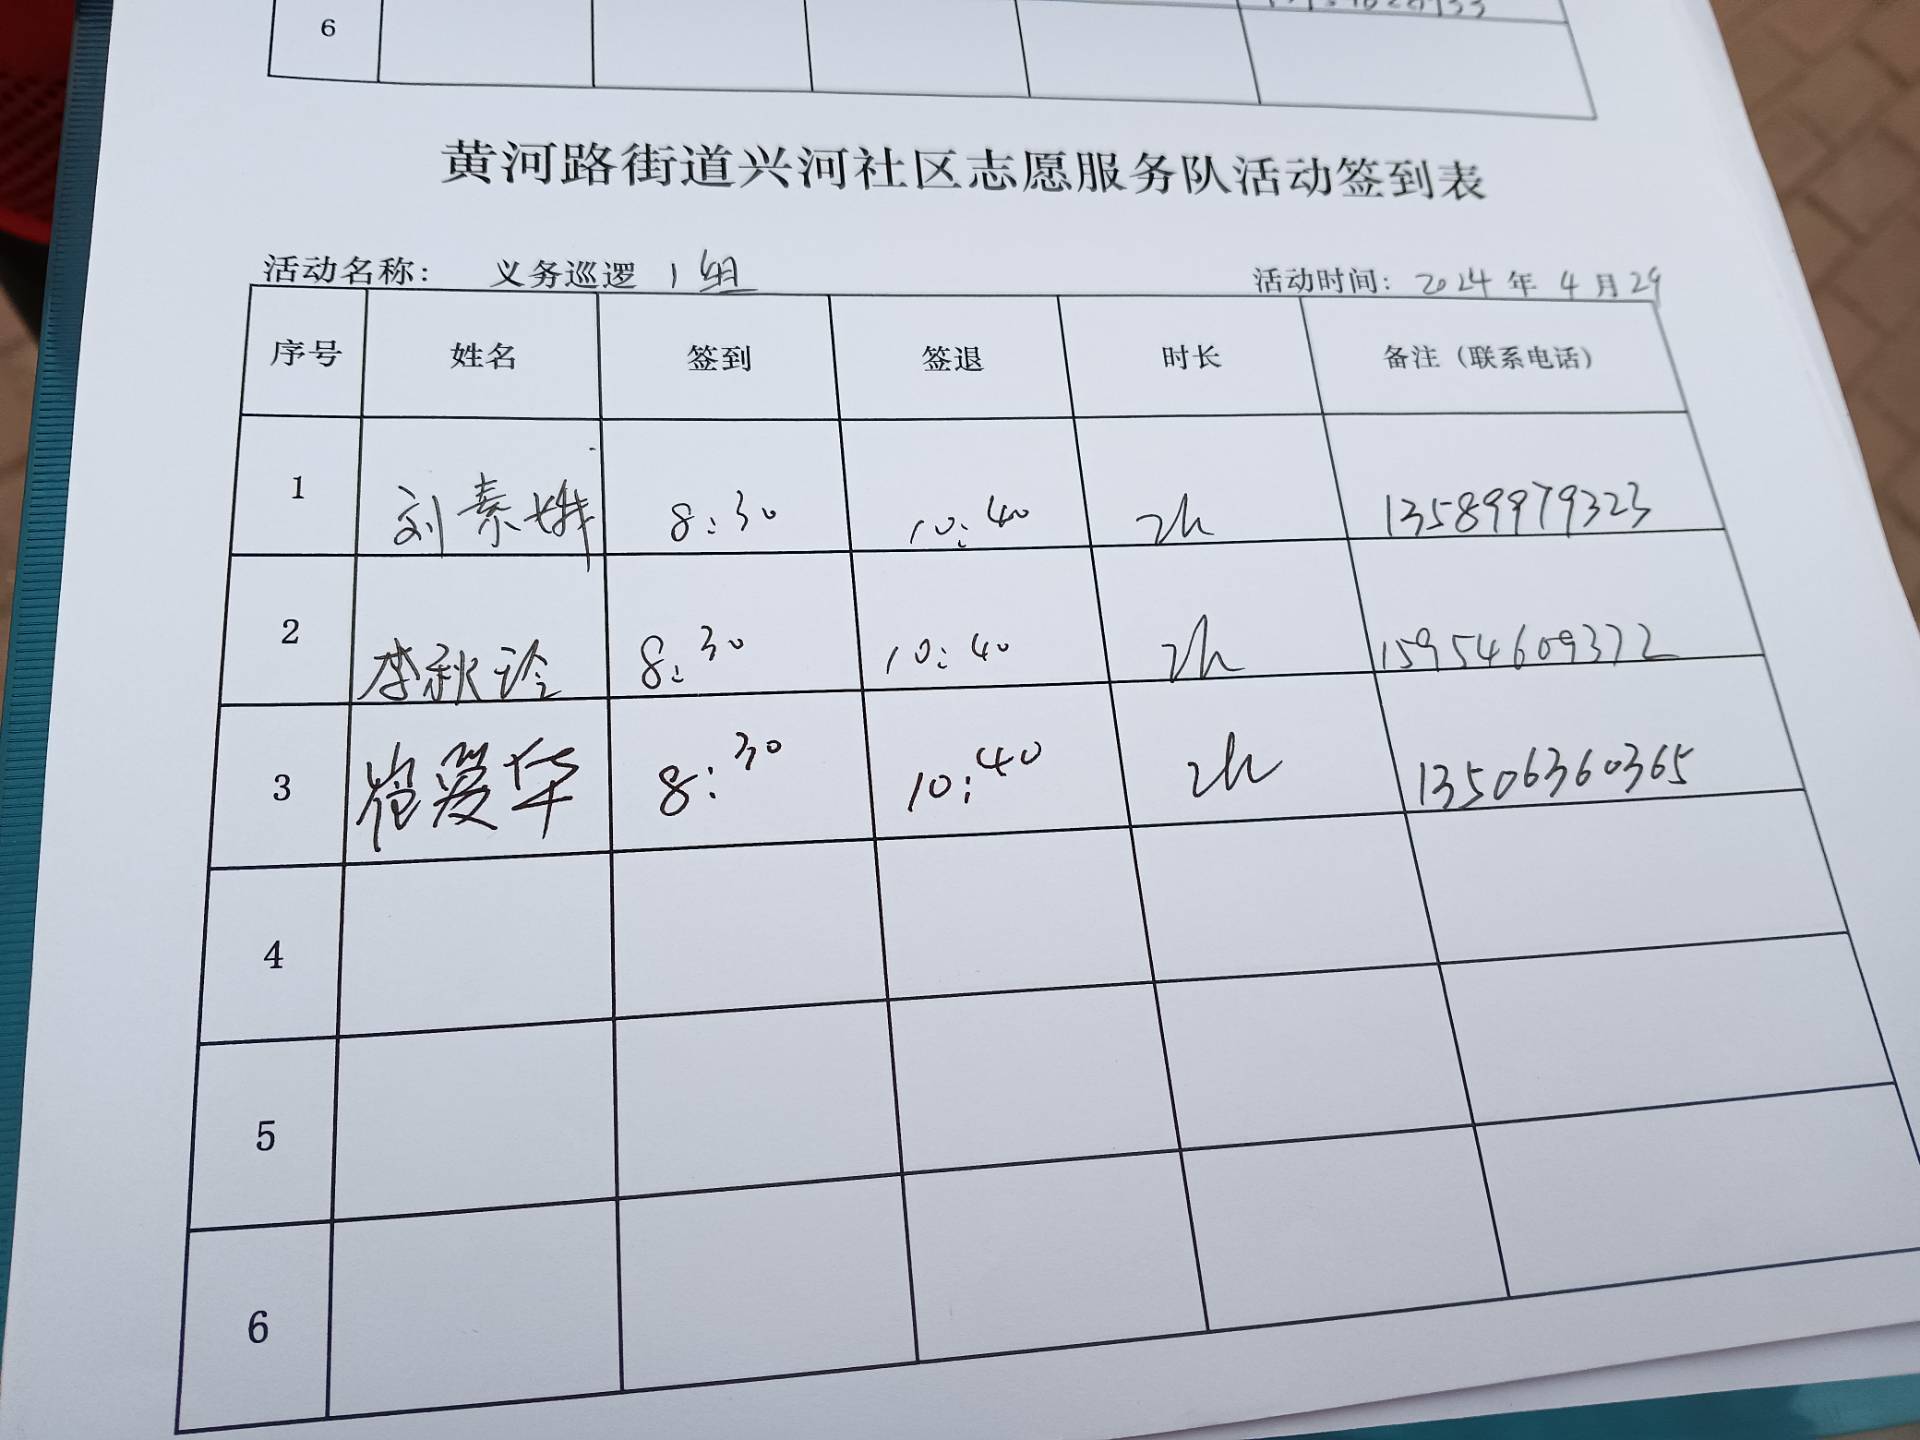 6
黄河路街道兴河社区志愿服务队活动签到表
活动名称： 义务巡逻 1组 活动时间：2024年4月29
序号 姓名 签到 签退 时长 备注（联系电话）
1 刘素娥 8:30 10:40 2h 13589979323
2 李秋玲 8:30 10:40 2h 15954609372
3 崔爱华 8:30 10:40 2h 13506360365
4
5
6